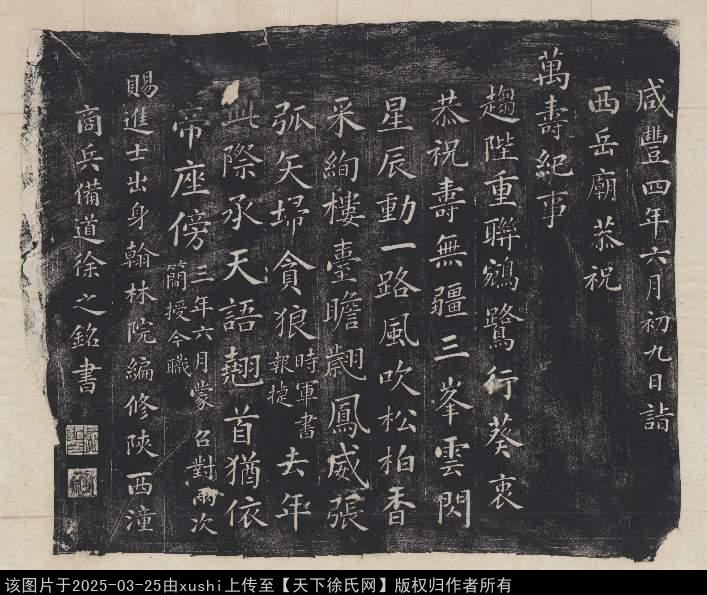 咸豐四年六月初九日詣
西岳廟恭祝
萬壽紀事
趨陛重聯鵷鷺行葵衷
恭祝壽無疆三峯雲閃
星辰動一路風吹松柏香
采絢樓臺瞻翽鳳威張
弧矢埽貪狼時軍書報捷去年
此際承天語翹首猶依
帝座傍三年六月蒙召對兩次簡授今職
賜進士出身翰林院編修陝西潼
商兵備道徐之銘書
该图片于2025-03-25由xushi上传至【天下徐氏网】版权归作者所有